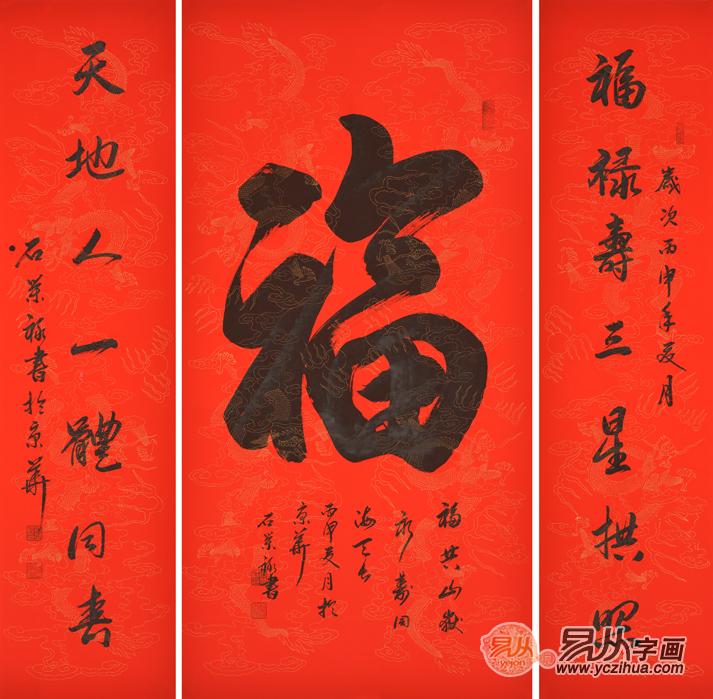 福禄壽三星拱照
歲次丙申年夏月
福
福共山嶽
永壽同
海天长
丙申夏月於
京華
石荣禄書
天地人一體同春
石荣禄書於京華
易从
易从字画
www.yczihua.com